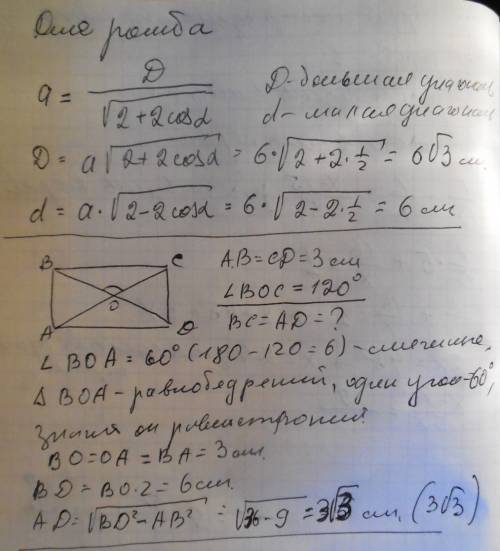 Для ромба
a = D / √(2+2cosα)
D - большая диагональ
d - малая диагональ
D = a√(2+2cosα) = 6·√(2+2·1/2) = 6√3 см.
d = a·√(2-2cosα) = 6·√(2-2·1/2) = 6 см
B C
O
A D
AB = CD = 3 см
∠BOC = 120°
BC = AD = ?
∠BOA = 60° (180-120=6) - смежные,
Δ BOA - равнобедренный, один угол-60°,
значит он равносторонний
BO = OA = BA = 3 см.
BD = BO·2 = 6 см.
AD = √(BD²-AB²) = √(36-9) = 3√3 см, (3√3)